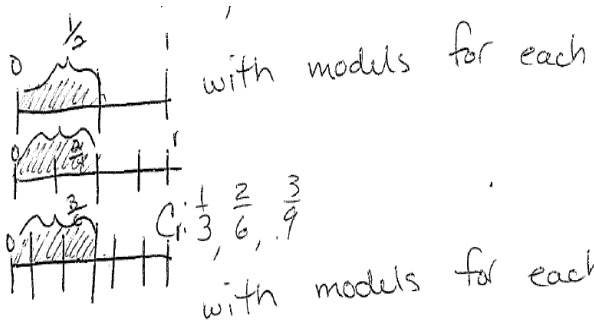 1/2
0 1
with models for each
0 2/4 1
0 3/6
Cr: 1/3, 2/6, 3/9
with models for each